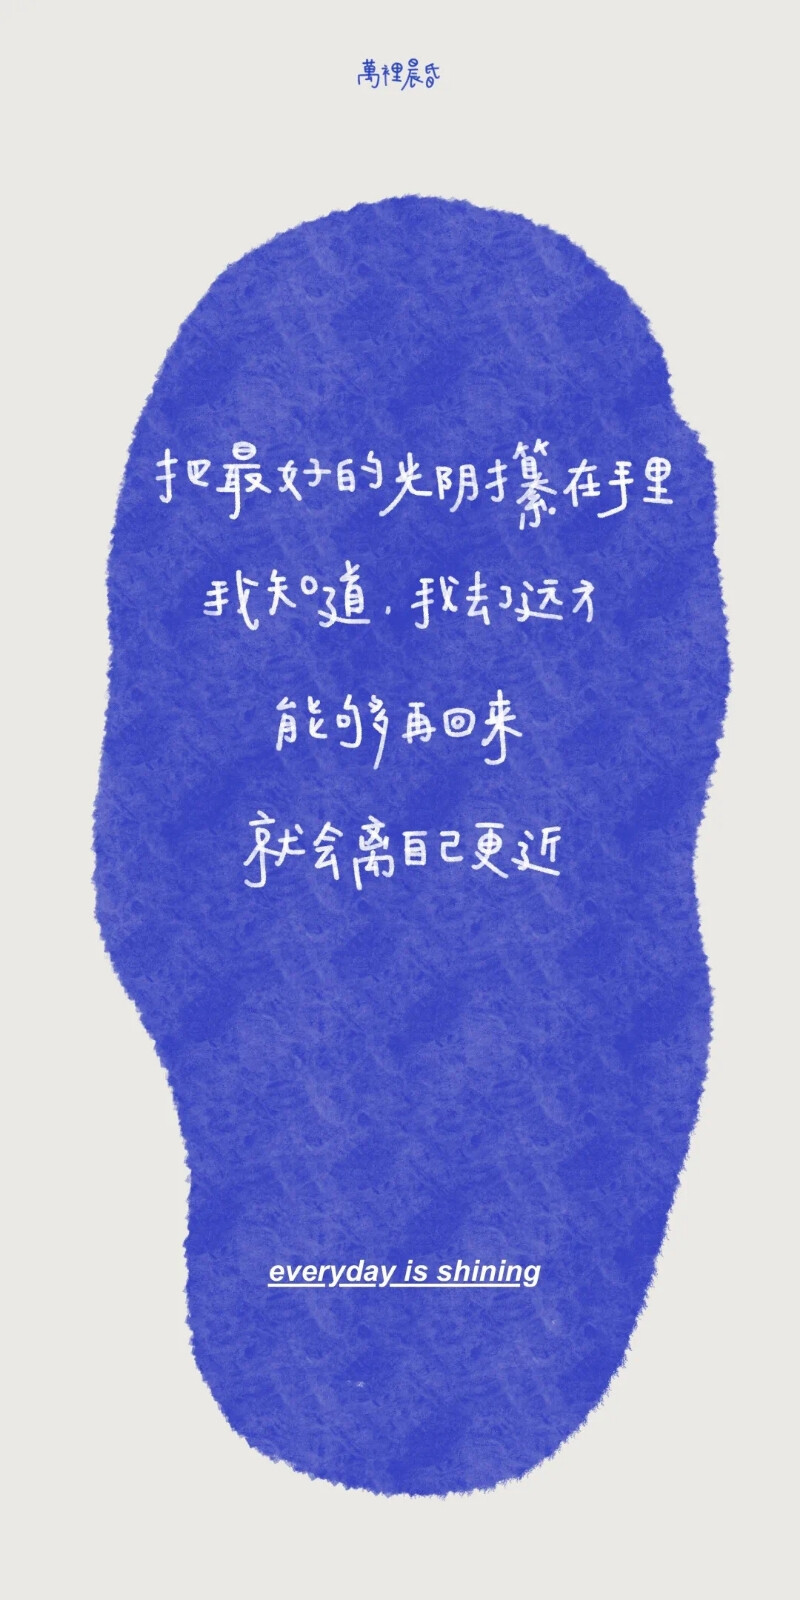 萬裡晨昏
把最好的光阴攥在手里
我知道，我去了远方
能够再回来
就会离自己更近
everyday is shining